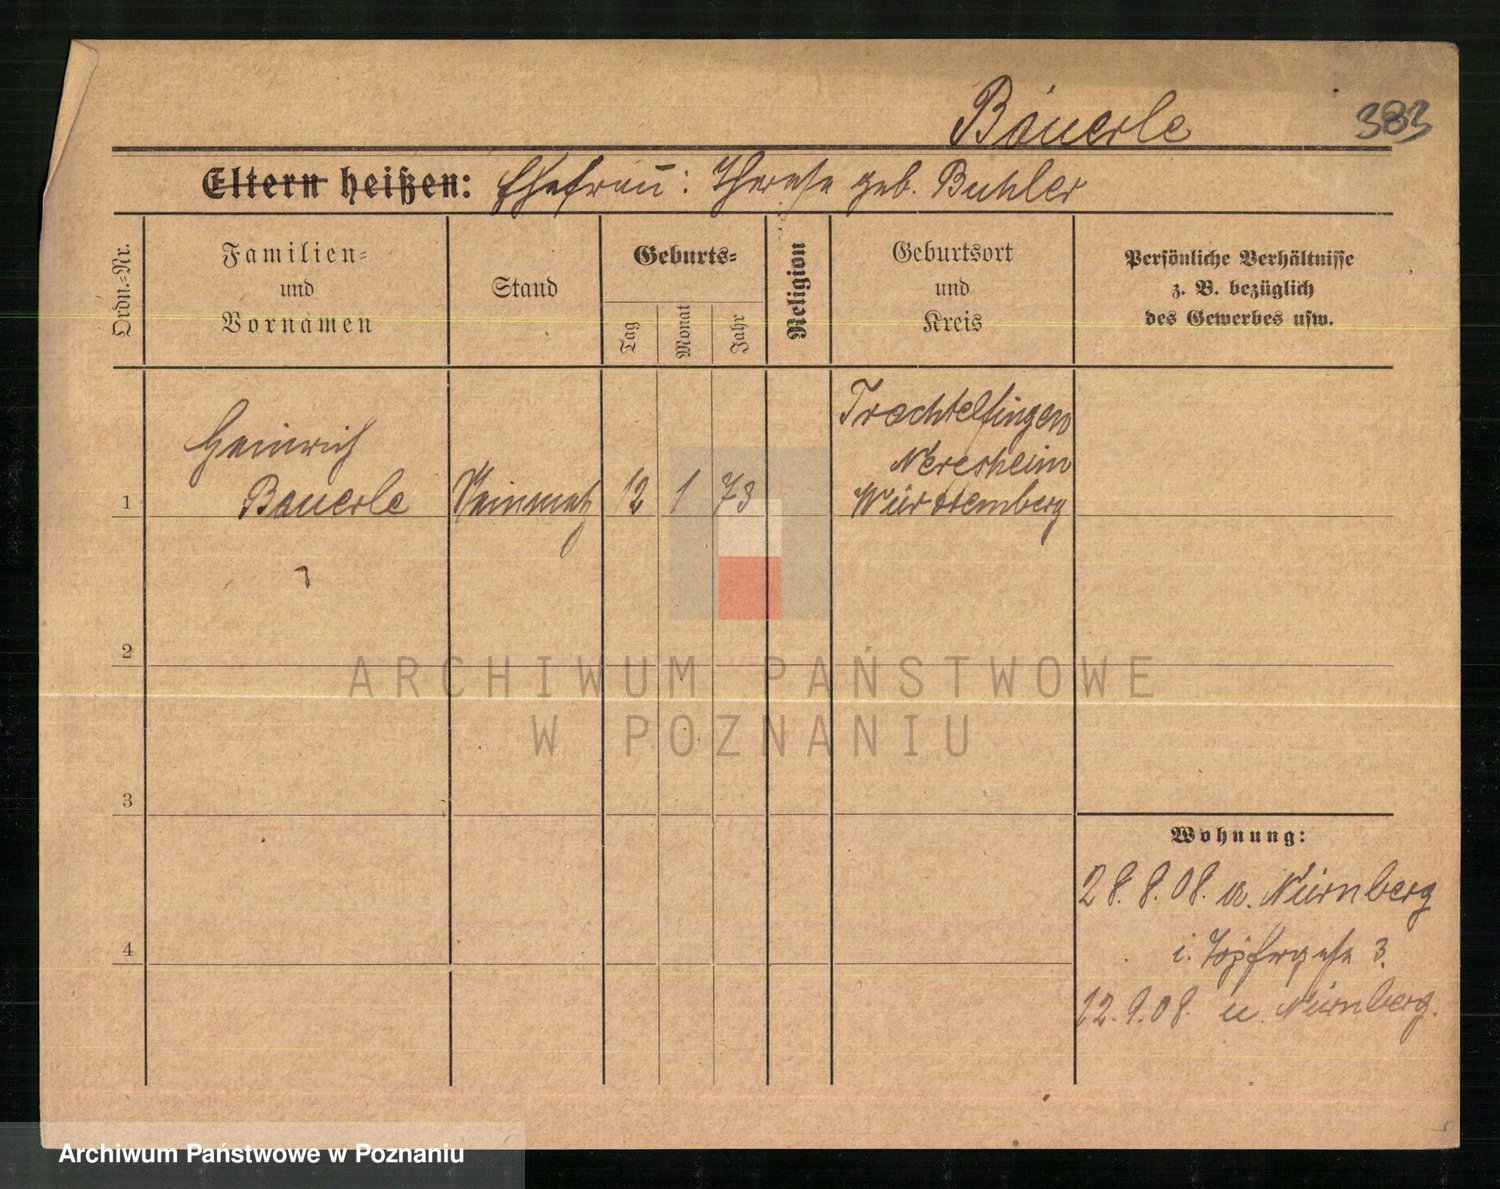 Bäuerle 383
Eltern heißen: Ehefrau: Therese geb. Buhler
Ordn.-Nr.
Familien-
und
Vornamen
Stand
Geburts-
Tag
Monat
Jahr
Religion
Geburtsort
und
Kreis
Persönliche Verhältnisse
z. B. bezüglich
des Gewerbes usw.
1
Heinrich
Bäuerle
Steinmetz
12
1
73
Trochtelfingen
Neresheim
Württemberg
2
3
4
Wohnung:
28.8.08. a. Nürnberg
i. Töpfergasse 3.
12.9.08 u. Nürnberg.
ARCHIWUM PAŃSTWOWE
W POZNANIU
Archiwum Państwowe w Poznaniu